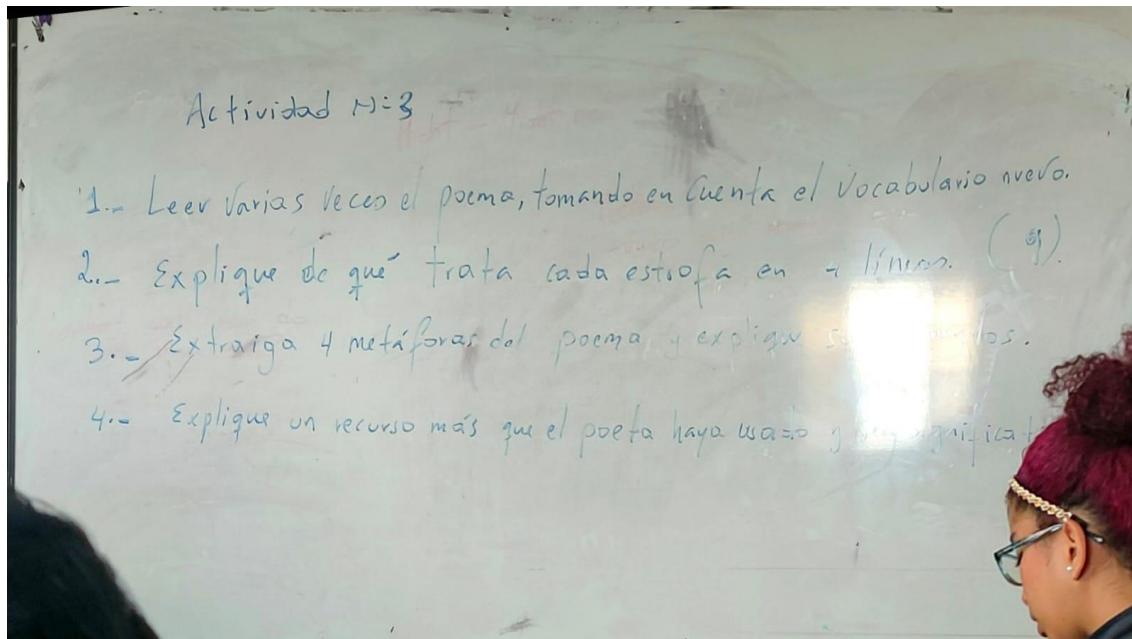 Actividad N:3
1.- Leer varias veces el poema, tomando en cuenta el vocabulario nuevo.
2.- Explique de qué trata cada estrofa en 4 líneas. (9).
3.- Extraiga 4 metáforas del poema y explique
4.- Explique un recurso más que el poeta haya usado y